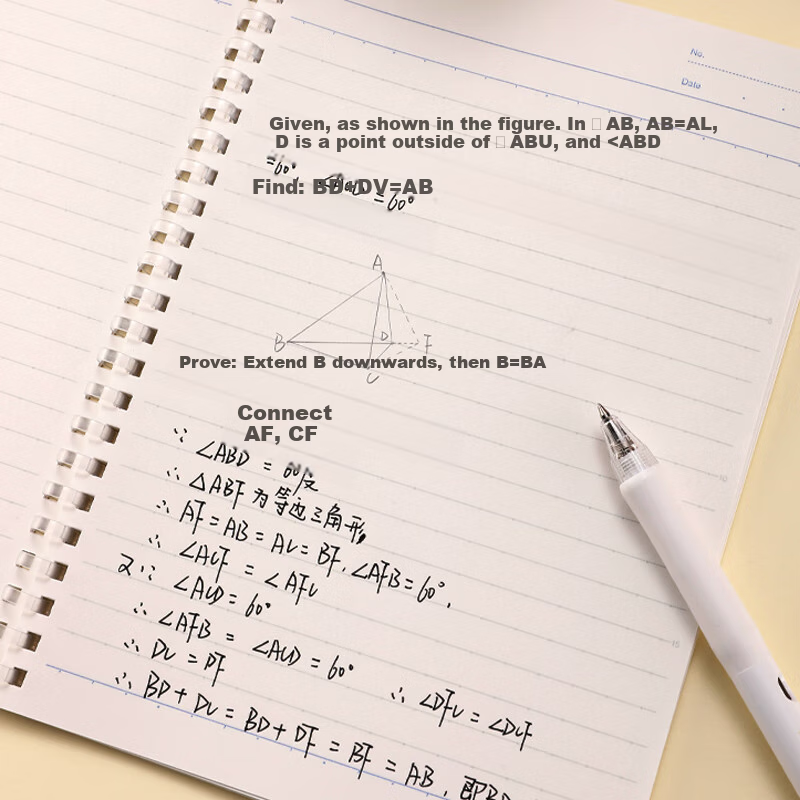 No.
Date
Given, as shown in the figure. In □ AB, AB=AL,
D is a point outside of □ ABU, and <ABD
=60°,
=60°
Find: BD+DV=AB
A
B
D
F
C
Prove: Extend B downwards, then B=BA
Connect
AF, CF
∵ ∠ABD = 60度
∴ △ABF为等边三角形,
∴ AF=AB=AC=BF, ∠AFB=60°,
∴ ∠ACF = ∠AFC
又∵ ∠ACD=60°
∴ ∠AFB = ∠ACD=60°
∴ ∠DFC=∠DCF
∴ DC=DF
∴ BD+DC=BD+DF=BF=AB, 即BD
5
10
15